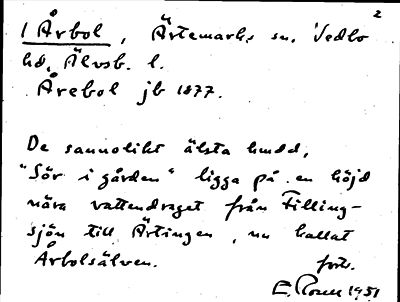 2
1 Årbol, Ärtemarks sn. Vedbo
hd, Älvsb. l.
Årebol jb 1877.
De sannolikt älsta hudd,
"Sör i gården" ligga på en höjd
nära vattendraget från Filling-
sjön till Ärtingen, nu kallat
Årbolsälven. forts.
E. 1951